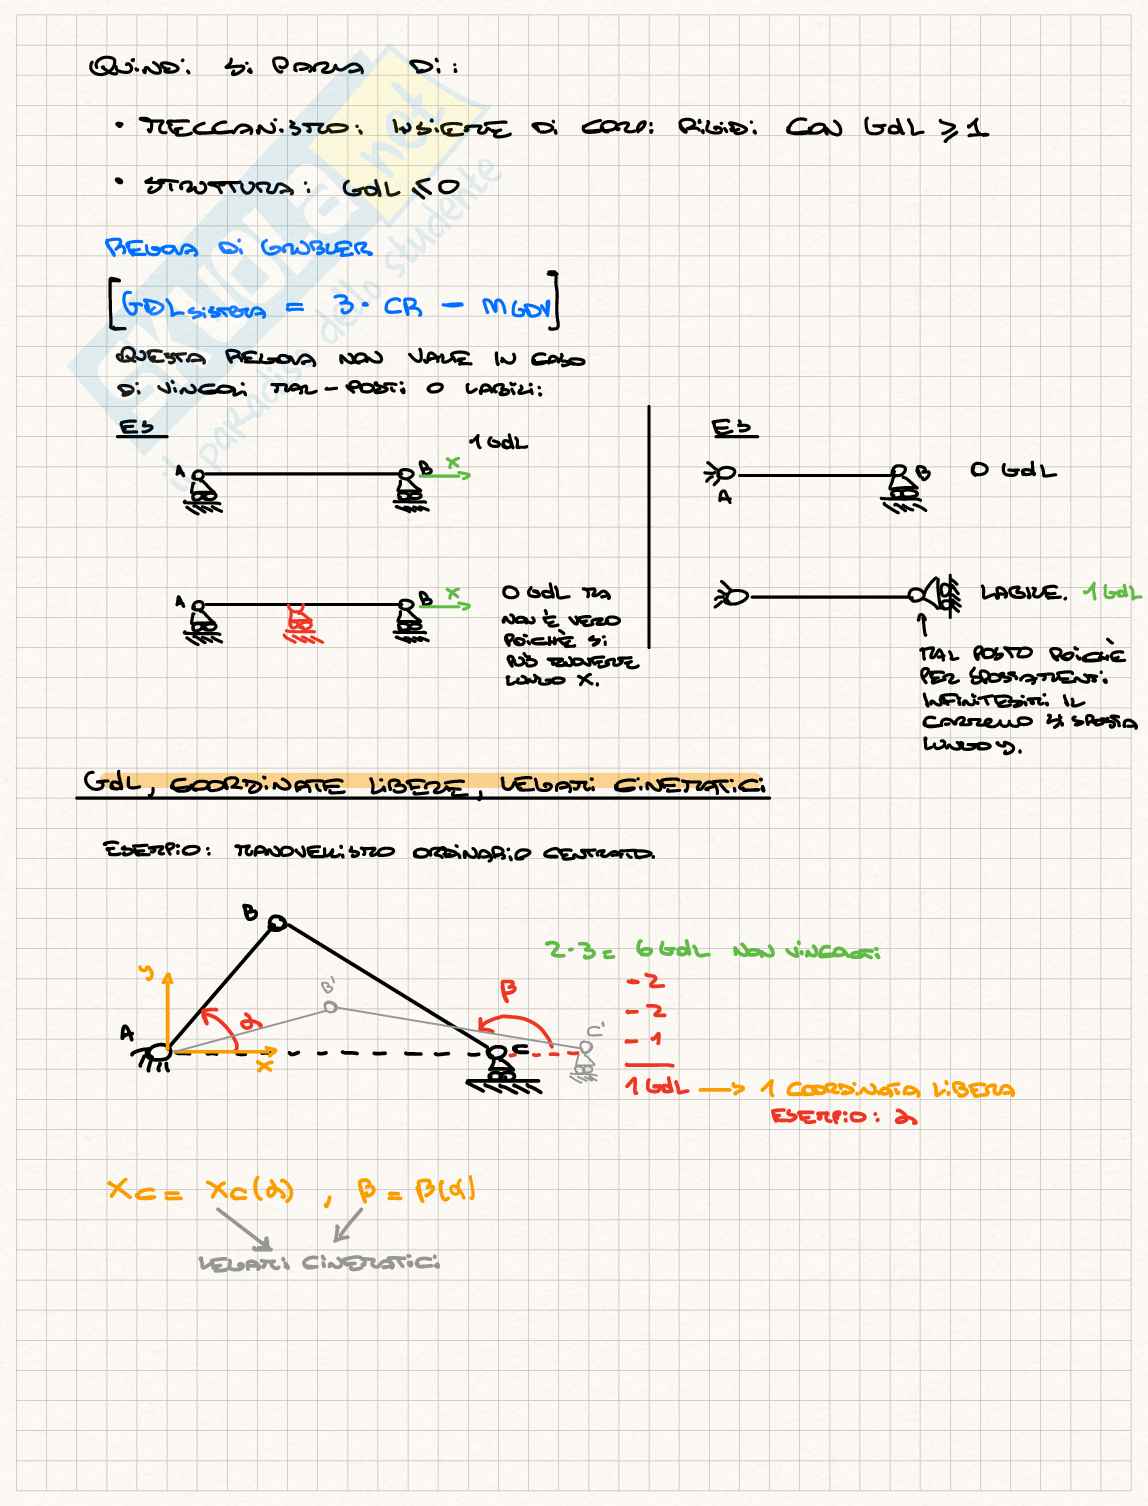 QUINDI SI PARLA DI:
• MECCANISMO: INSIEME DI CORPI RIGIDI CON GdL ≥ 1
• STRUTTURA: GdL ≤ 0
REGOLA DI GRUBLER
[GDL SISTEMA = 3 · CR - M GDV]
QUESTA REGOLA NON VALE IN CASO
DI VINCOLI MAL-POSTI O LABILI:
ES
1 GdL
A
B
X
A
B
X
0 GdL MA
NON È VERO
POICHÈ SI
PUÒ MUOVERE
LUNGO X.
ES
A
B
0 GdL
LABILE. 1 GdL
MAL POSTO POICHÈ
PER SPOSTAMENTI
INFINITESIMI IL
CARRELLO SI SPOSTA
LUNGO y.
GdL, COORDINATE LIBERE, LEGAMI CINEMATICI
ESEMPIO: MANOVELLISMO ORDINARIO CENTRATO.
B
y
A
α
B'
β
C
C'
x
2·3 = 6 GdL NON VINCOLATI
- 2
- 2
- 1
1 GdL → 1 COORDINATA LIBERA
ESEMPIO: α
XC = XC(α) , β = β(α)
LEGAMI CINEMATICI
SKUOLA.net
il paradiso dello studente